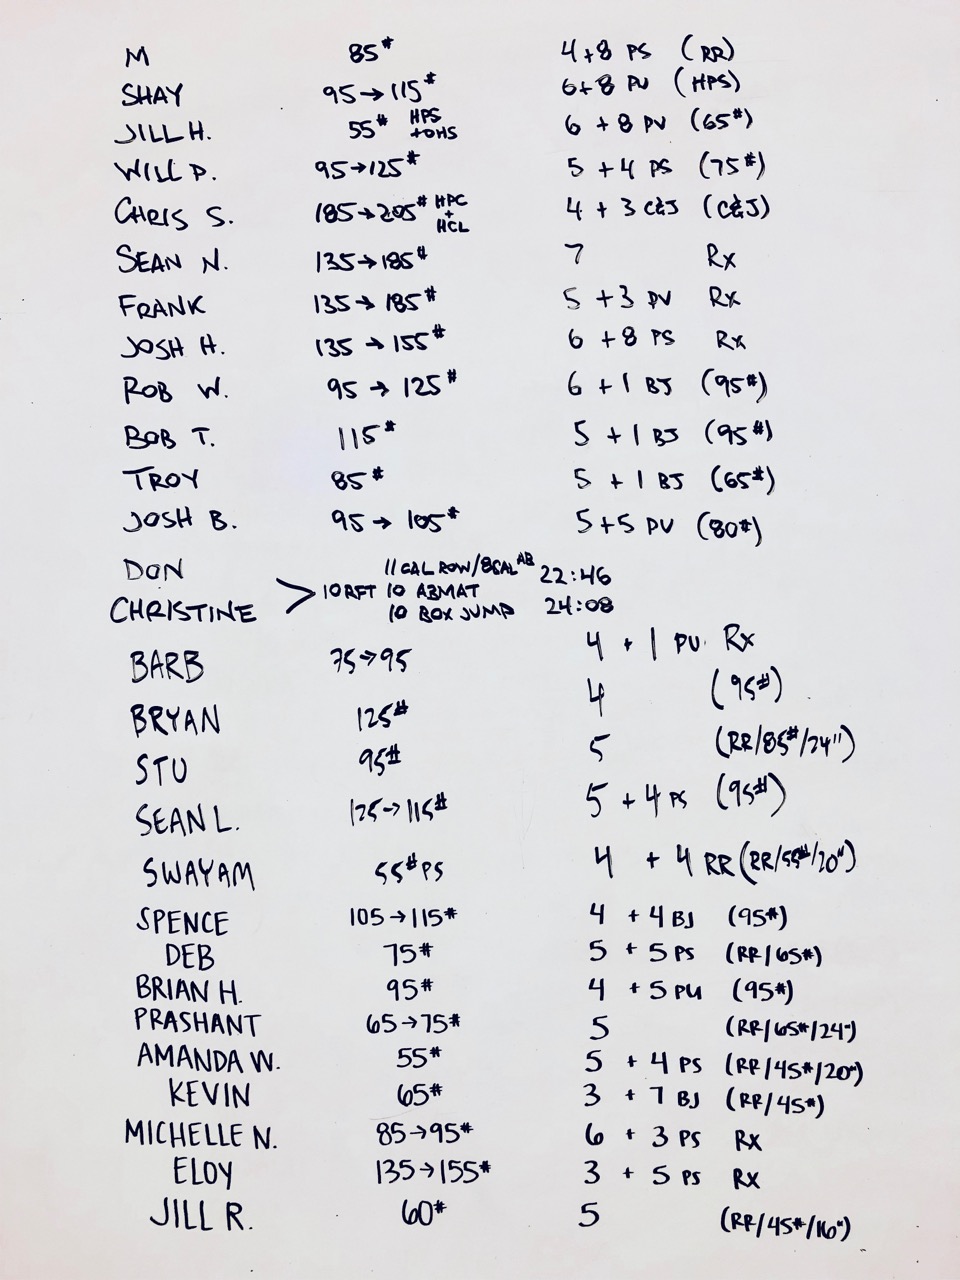 M 85# 4+8 PS (RR)
SHAY 95→115# 6+8 PU (HPS)
JILL H. 55# HPS +OHS 6 + 8 PU (65#)
WILL P. 95→125# 5 + 4 PS (75#)
CHRIS S. 185→205# HPC + HCL 4 + 3 C&J (C&J)
SEAN N. 135→185# 7 Rx
FRANK 135→185# 5 + 3 PU Rx
JOSH H. 135→155# 6 + 8 PS Rx
ROB W. 95→125# 6 + 1 BJ (95#)
BOB T. 115# 5 + 1 BJ (95#)
TROY 85# 5 + 1 BJ (65#)
JOSH B. 95→105# 5+5 PU (80#)
DON 11 CAL ROW/8CAL AB 22:46
> 10 RFT 10 ABMAT
CHRISTINE 10 BOX JUMP 24:08
BARB 75→95 4 + 1 PU Rx
BRYAN 125# 4 (95#)
STU 95# 5 (RR/85#/24")
SEAN L. 125→115# 5 + 4 PS (95#)
SWAYAM 55# PS 4 + 4 RR (RR/55#/20")
SPENCE 105→115# 4 + 4 BJ (95#)
DEB 75# 5 + 5 PS (RR/65#)
BRIAN H. 95# 4 + 5 PU (95#)
PRASHANT 65→75# 5 (RR/65#/24")
AMANDA W. 55# 5 + 4 PS (RR/45#/20")
KEVIN 65# 3 + 7 BJ (RR/45#)
MICHELLE N. 85→95# 6 + 3 PS Rx
ELOY 135→155# 3 + 5 PS Rx
JILL R. 60# 5 (RR/45#/16")